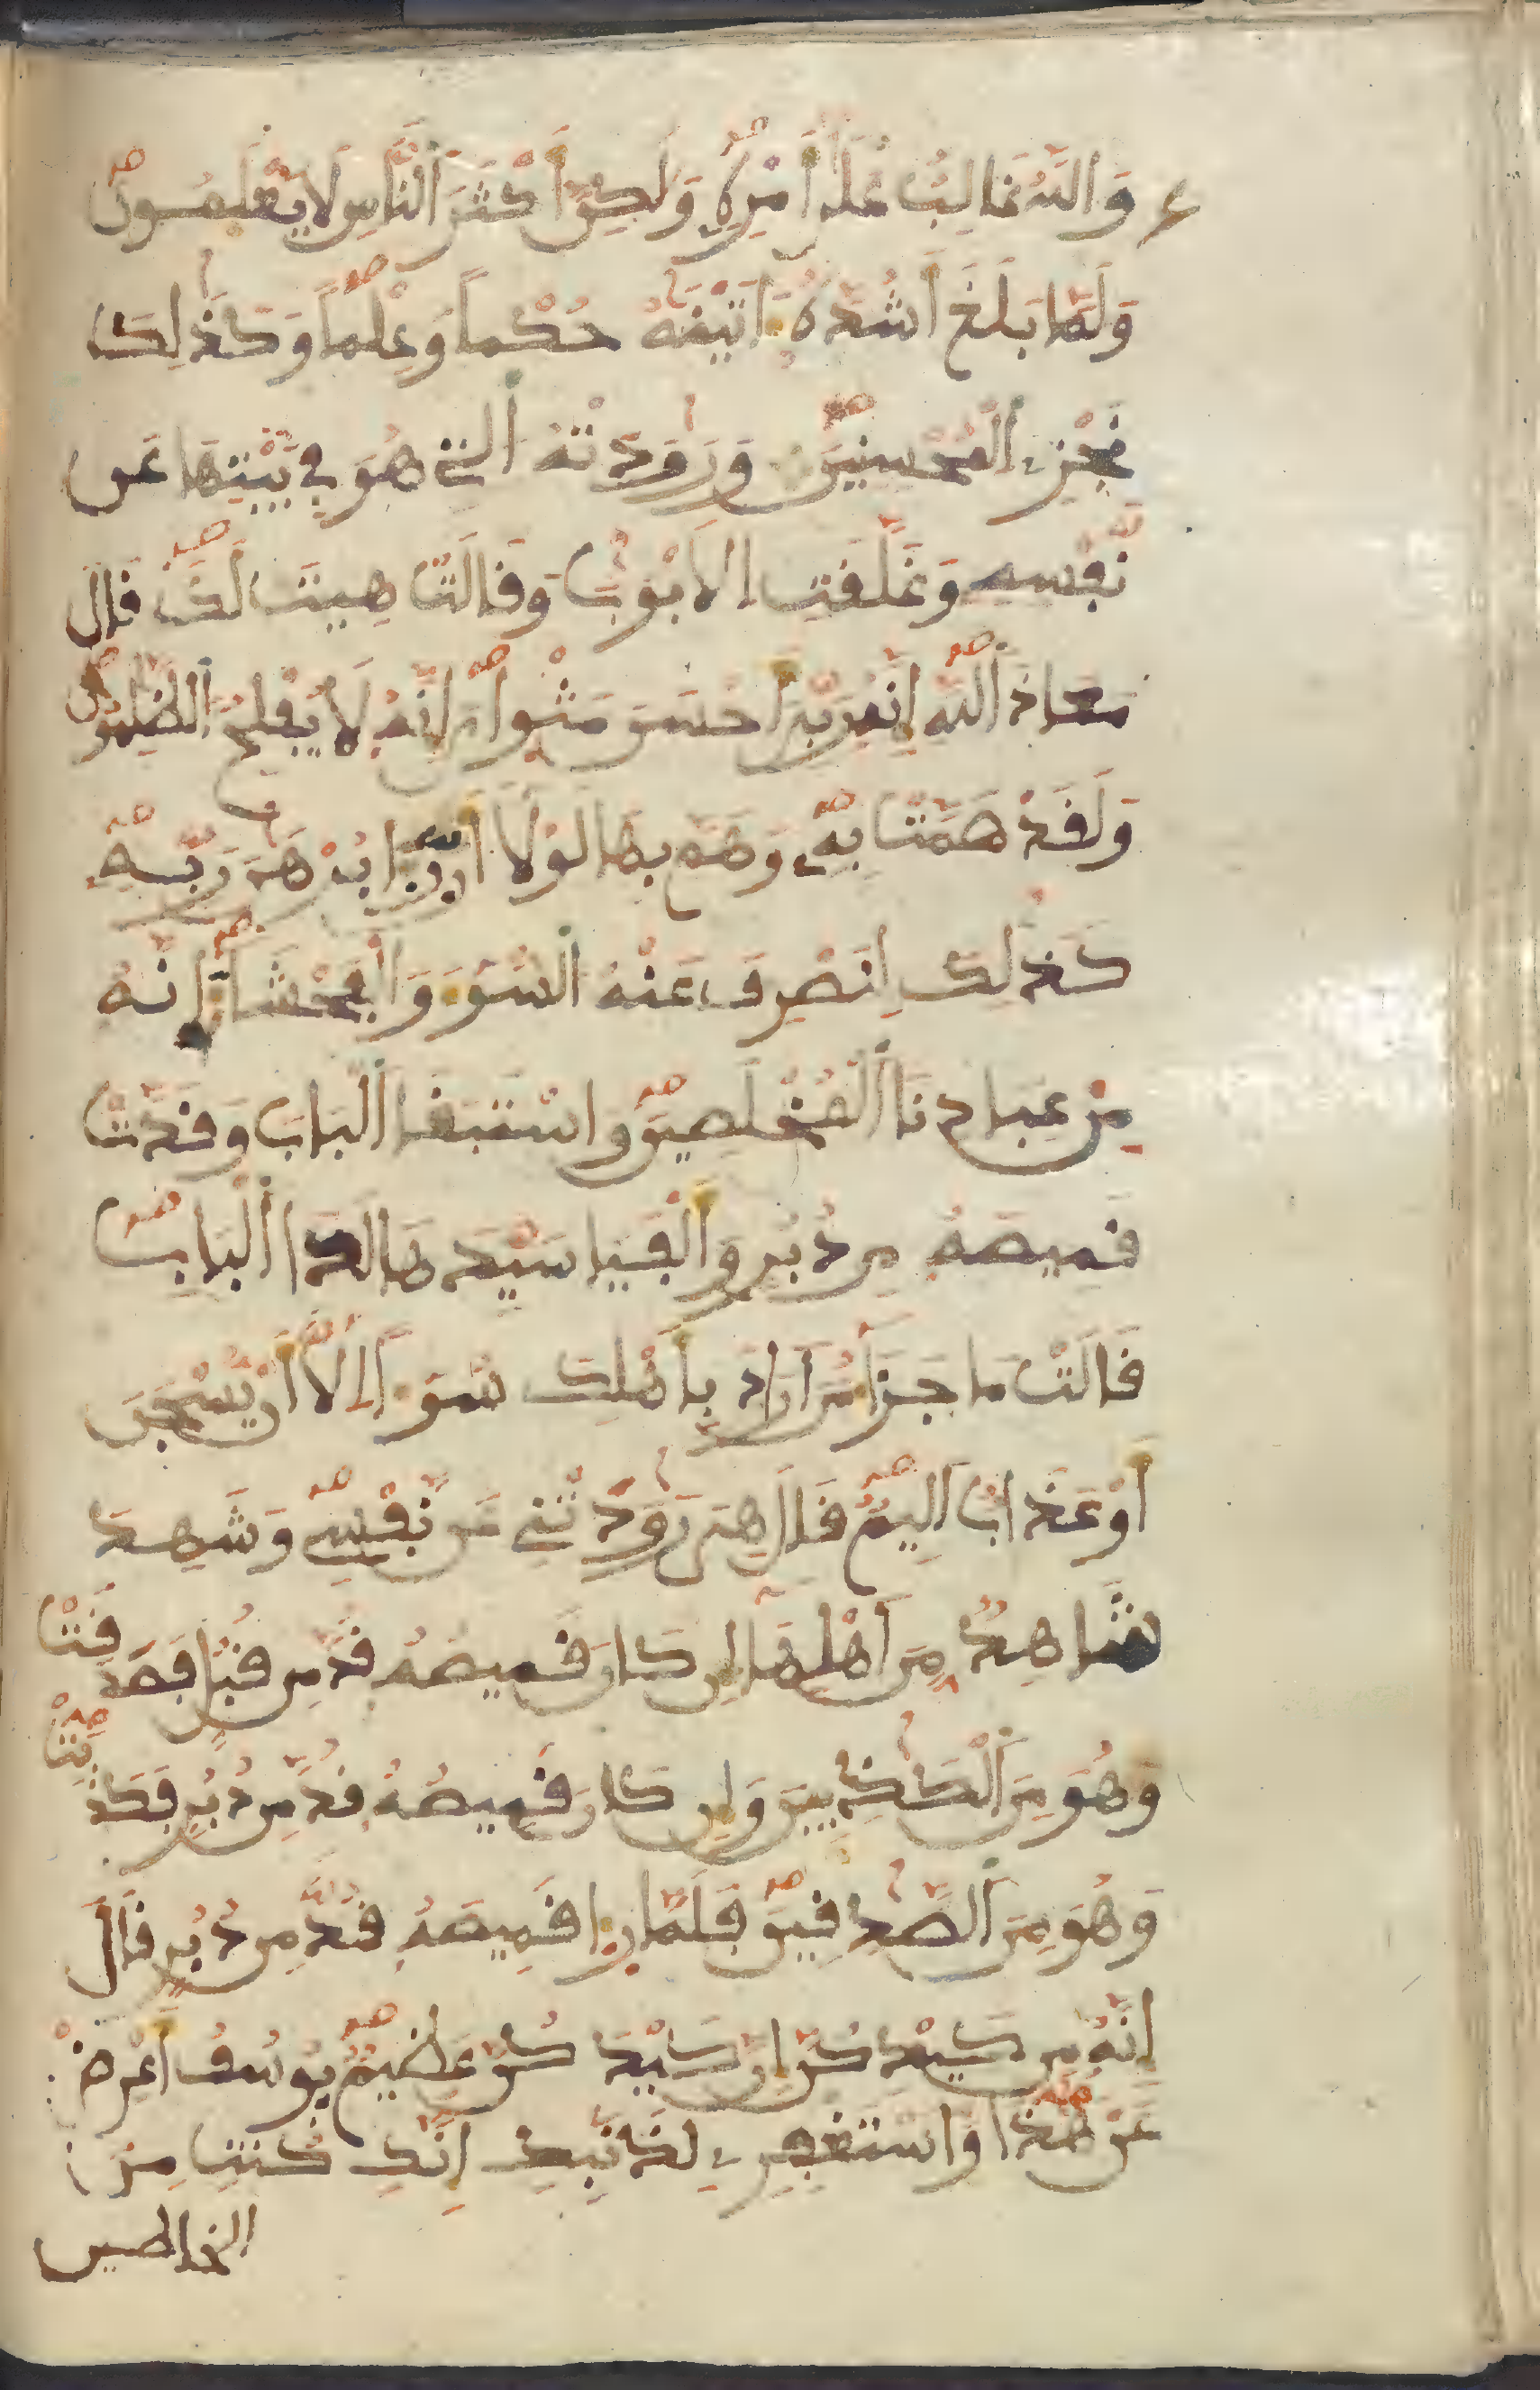 وَاللَّهُ غَالِبٌ عَلَىٰ أَمْرِهِ وَلَكِنَّ أَكْثَرَ النَّاسِ لَا يَعْلَمُونَ
وَلَمَّا بَلَغَ أَشُدَّهُ ءَاتَيْنَهُ حُكْماً وَعِلْماً وَكَذَلِكَ
نَجْزِے الْمُحْسِنِينَ وَرَوَدَتْهُ التِے هُوَ فِے بَيْتِهَا عَن
نَّفْسِهِ وَغَلَّقَتِ الَابْوَبَ وَقَالَتْ هِيتَ لَكَ قَالَ
مَعَاذَ اللَّهِ إِنَّهُ رَبِّيَ أَحْسَنَ مَثْوَايَ إِنَّهُ لَا يُفْلِحُ الظَّلِمُونَ
وَلَقَدْ هَمَّتْ بِهِ وَهَمَّ بِهَا لَوْلَا أَن رَّءَا بُرْهَنَ رَبِّهِ
كَذَلِكَ لِنَصْرِفَ عَنْهُ السُّوءَ وَالْفَحْشَاءَ اِنَّهُ
مِنْ عِبَادِنَا الْمُخْلَصِينَ وَاسْتَبَقَا الْبَابَ وَقَدَّتْ
قَمِيصَهُ مِن دُبُرٍ وَأَلْفَيَا سَيِّدَهَا لَدَا الْبَابِ
قَالَتْ مَا جَزَاءُ مَنَ ارَادَ بِأَهْلِكَ سُوءاً اِلَّا أَنْ يُسْجَنَ
أَوْ عَذَابٌ اَلِيمٌ قَالَ هِيَ رَوَدَتْنِے عَن نَّفْسِے وَشَهِدَ
شَاهِدٌ مِّنَ اَهْلِهَا إِن كَانَ قَمِيصُهُ قُدَّ مِن قُبُلٍ فَصَدَقَتْ
وَهُوَ مِنَ الْكَذِبِينَ وَإِن كَانَ قَمِيصُهُ قُدَّ مِن دُبُرٍ فَكَذَبَتْ
وَهُوَ مِنَ الصَّدِقِينَ فَلَمَّا رَءَا قَمِيصَهُ قُدَّ مِن دُبُرٍ قَالَ
إِنَّهُ مِن كَيْدِكُنَّ إِنَّ كَيْدَكُنَّ عَظِيمٌ يُوسُفُ أَعْرِضْ
عَنْ هَذَا وَاسْتَغْفِرِے لِذَنْبِكِ إِنَّكِ كُنتِ مِنَ
الخاطين